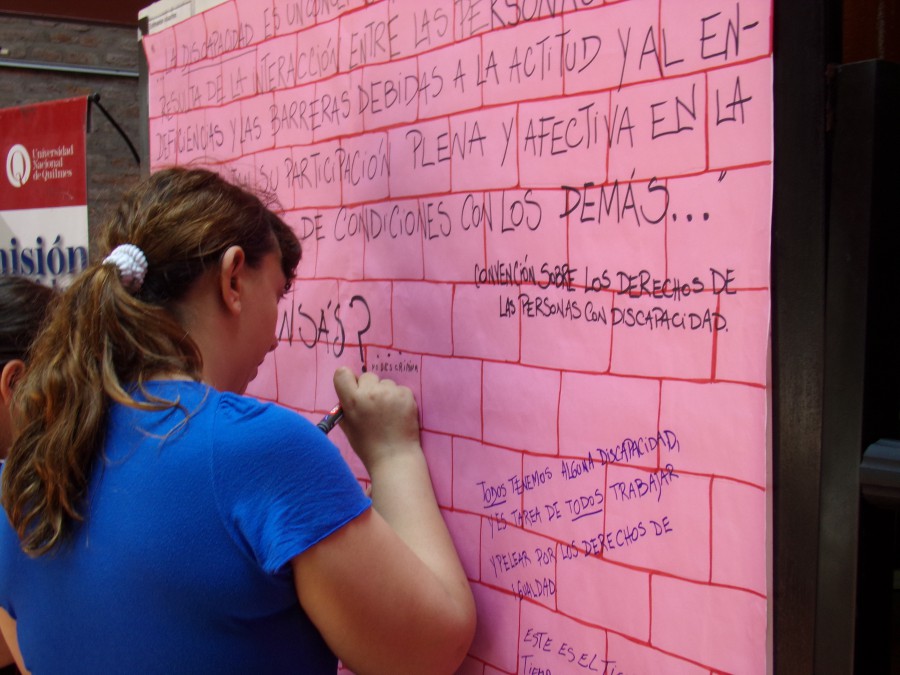 Universidad
Nacional
de Quilmes
misión
"LA DISCAPACIDAD ES UN CONCEPTO
RESULTA DE LA INTERACCIÓN ENTRE LAS PERSONAS
DEFICIENCIAS Y LAS BARRERAS DEBIDAS A LA ACTITUD Y AL EN-
SU PARTICIPACIÓN PLENA Y AFECTIVA EN LA
DE CONDICIONES CON LOS DEMÁS..."
CONVENCIÓN SOBRE LOS DERECHOS DE
LAS PERSONAS CON DISCAPACIDAD.
NSÁS?
TODOS TENEMOS ALGUNA DISCAPACIDAD,
Y ES TAREA DE TODOS TRABAJAR
Y PELEAR POR LOS DERECHOS DE
IGUALDAD
ESTE ES EL
TIEMPO